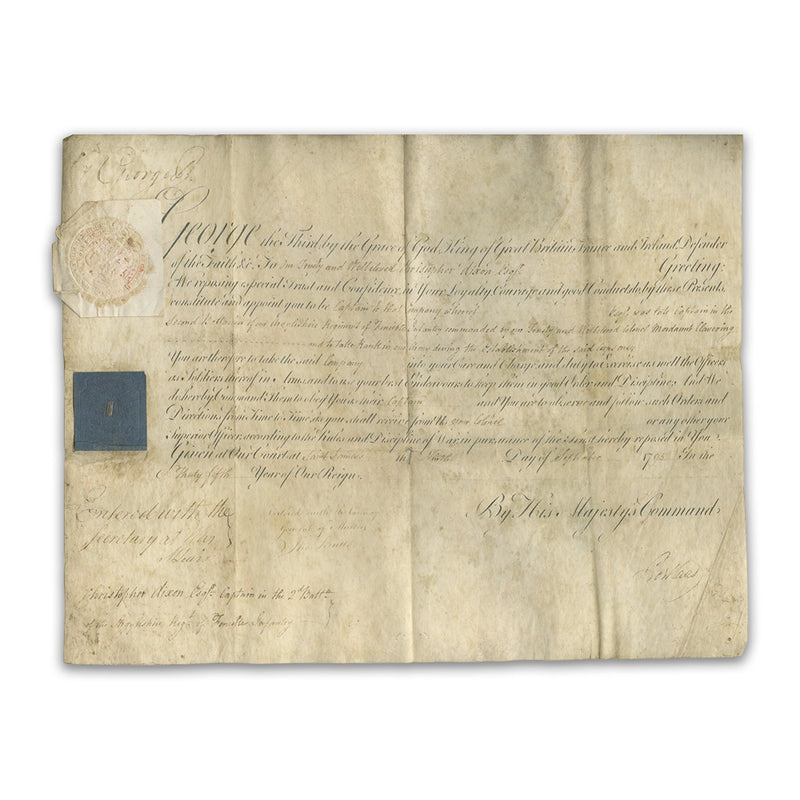 George R.
George the Third by the Grace of God King of Great Britain, France and Ireland, Defender
of the Faith &c. To Our Trusty and Wellbeloved Christopher Dixon Esqr. Greeting:
We reposing especial Trust and Confidence in Your Loyalty Courage and good Conduct do by these Presents
constitute and appoint you to be Captain to the Company whereof Esqr. was late Captain in the
Second of our Regiment of Fencible Infantry commanded by our Trusty and Wellbeloved Colonel
and to take Rank in our Army during the Establishment of the said Corps only
You are therefore to take the said Company into your Care and Charge and duly to Exercise as well the Officers
as Soldiers thereof in Arms and to use your best Endeavours to keep them in good Order and Discipline; And We
do hereby Command Them to obey You as their Captain and You are to observe and follow such Orders and
Directions from Time to Time as you shall receive from Us your Colonel or any other your
Superior Officer, according to the Rules and Discipline of War in pursuance of the Trust hereby reposed in You
Given at Our Court at Saint James's the Day of September 1795 In the
Thirty fifth Year of Our Reign
By His Majesty's Command
Entered with the
Secretary at War
Entered with the
General of Musters
Portland
Christopher Dixon Esqr. Captain in the 2d. Battn.
of the Regt. of Fencible Infantry